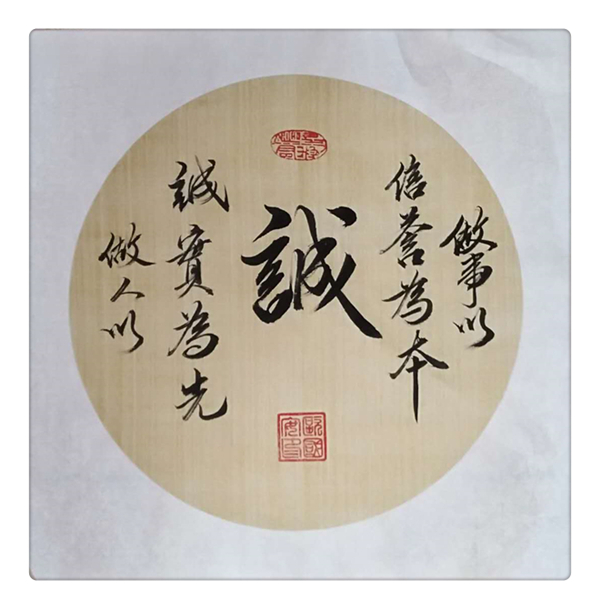 做事以
信誉為本
誠
做人以
誠實為先